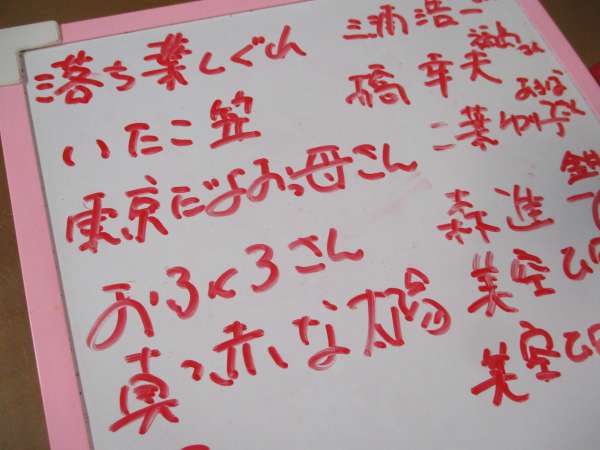 落ち葉しぐれ 三浦浩一
いたこ笠 橋幸夫
東京だよおっ母さん 二葉ゆり子
おふくろさん 森進一
真っ赤な太陽 美空ひ
美空ひ